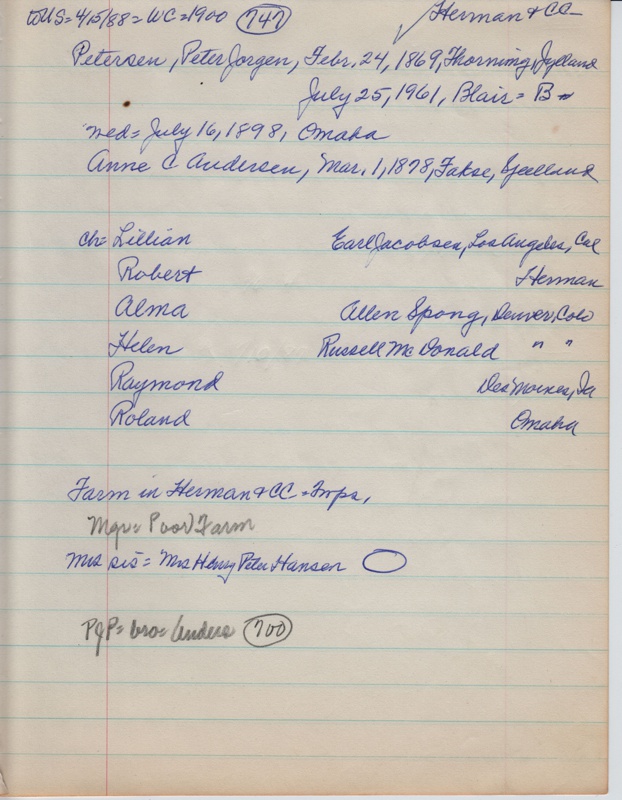 WUS = 4/15/88 = WC = 1900 747 Herman & CC
Petersen, Peter Jorgen, Febr. 24, 1869, Thorning, Jylland
July 25, 1961, Blair = B
med = July 16, 1898, Omaha
Anne C Andersen, Mar. 1, 1878, Fakse, Sjelland
Ch = Lillian Earl Jacobsen, Los Angeles, Cal
Robert Herman
Alma Allen Spong, Denver, Colo
Helen Russell McDonald " "
Raymond Des Moines, Ia
Roland Omaha
Farm in Herman & CC = Twps,
Mgr = Poor Farm
Mrs sis = Mrs Henry Peter Hansen
PJP = bro = Anders 700